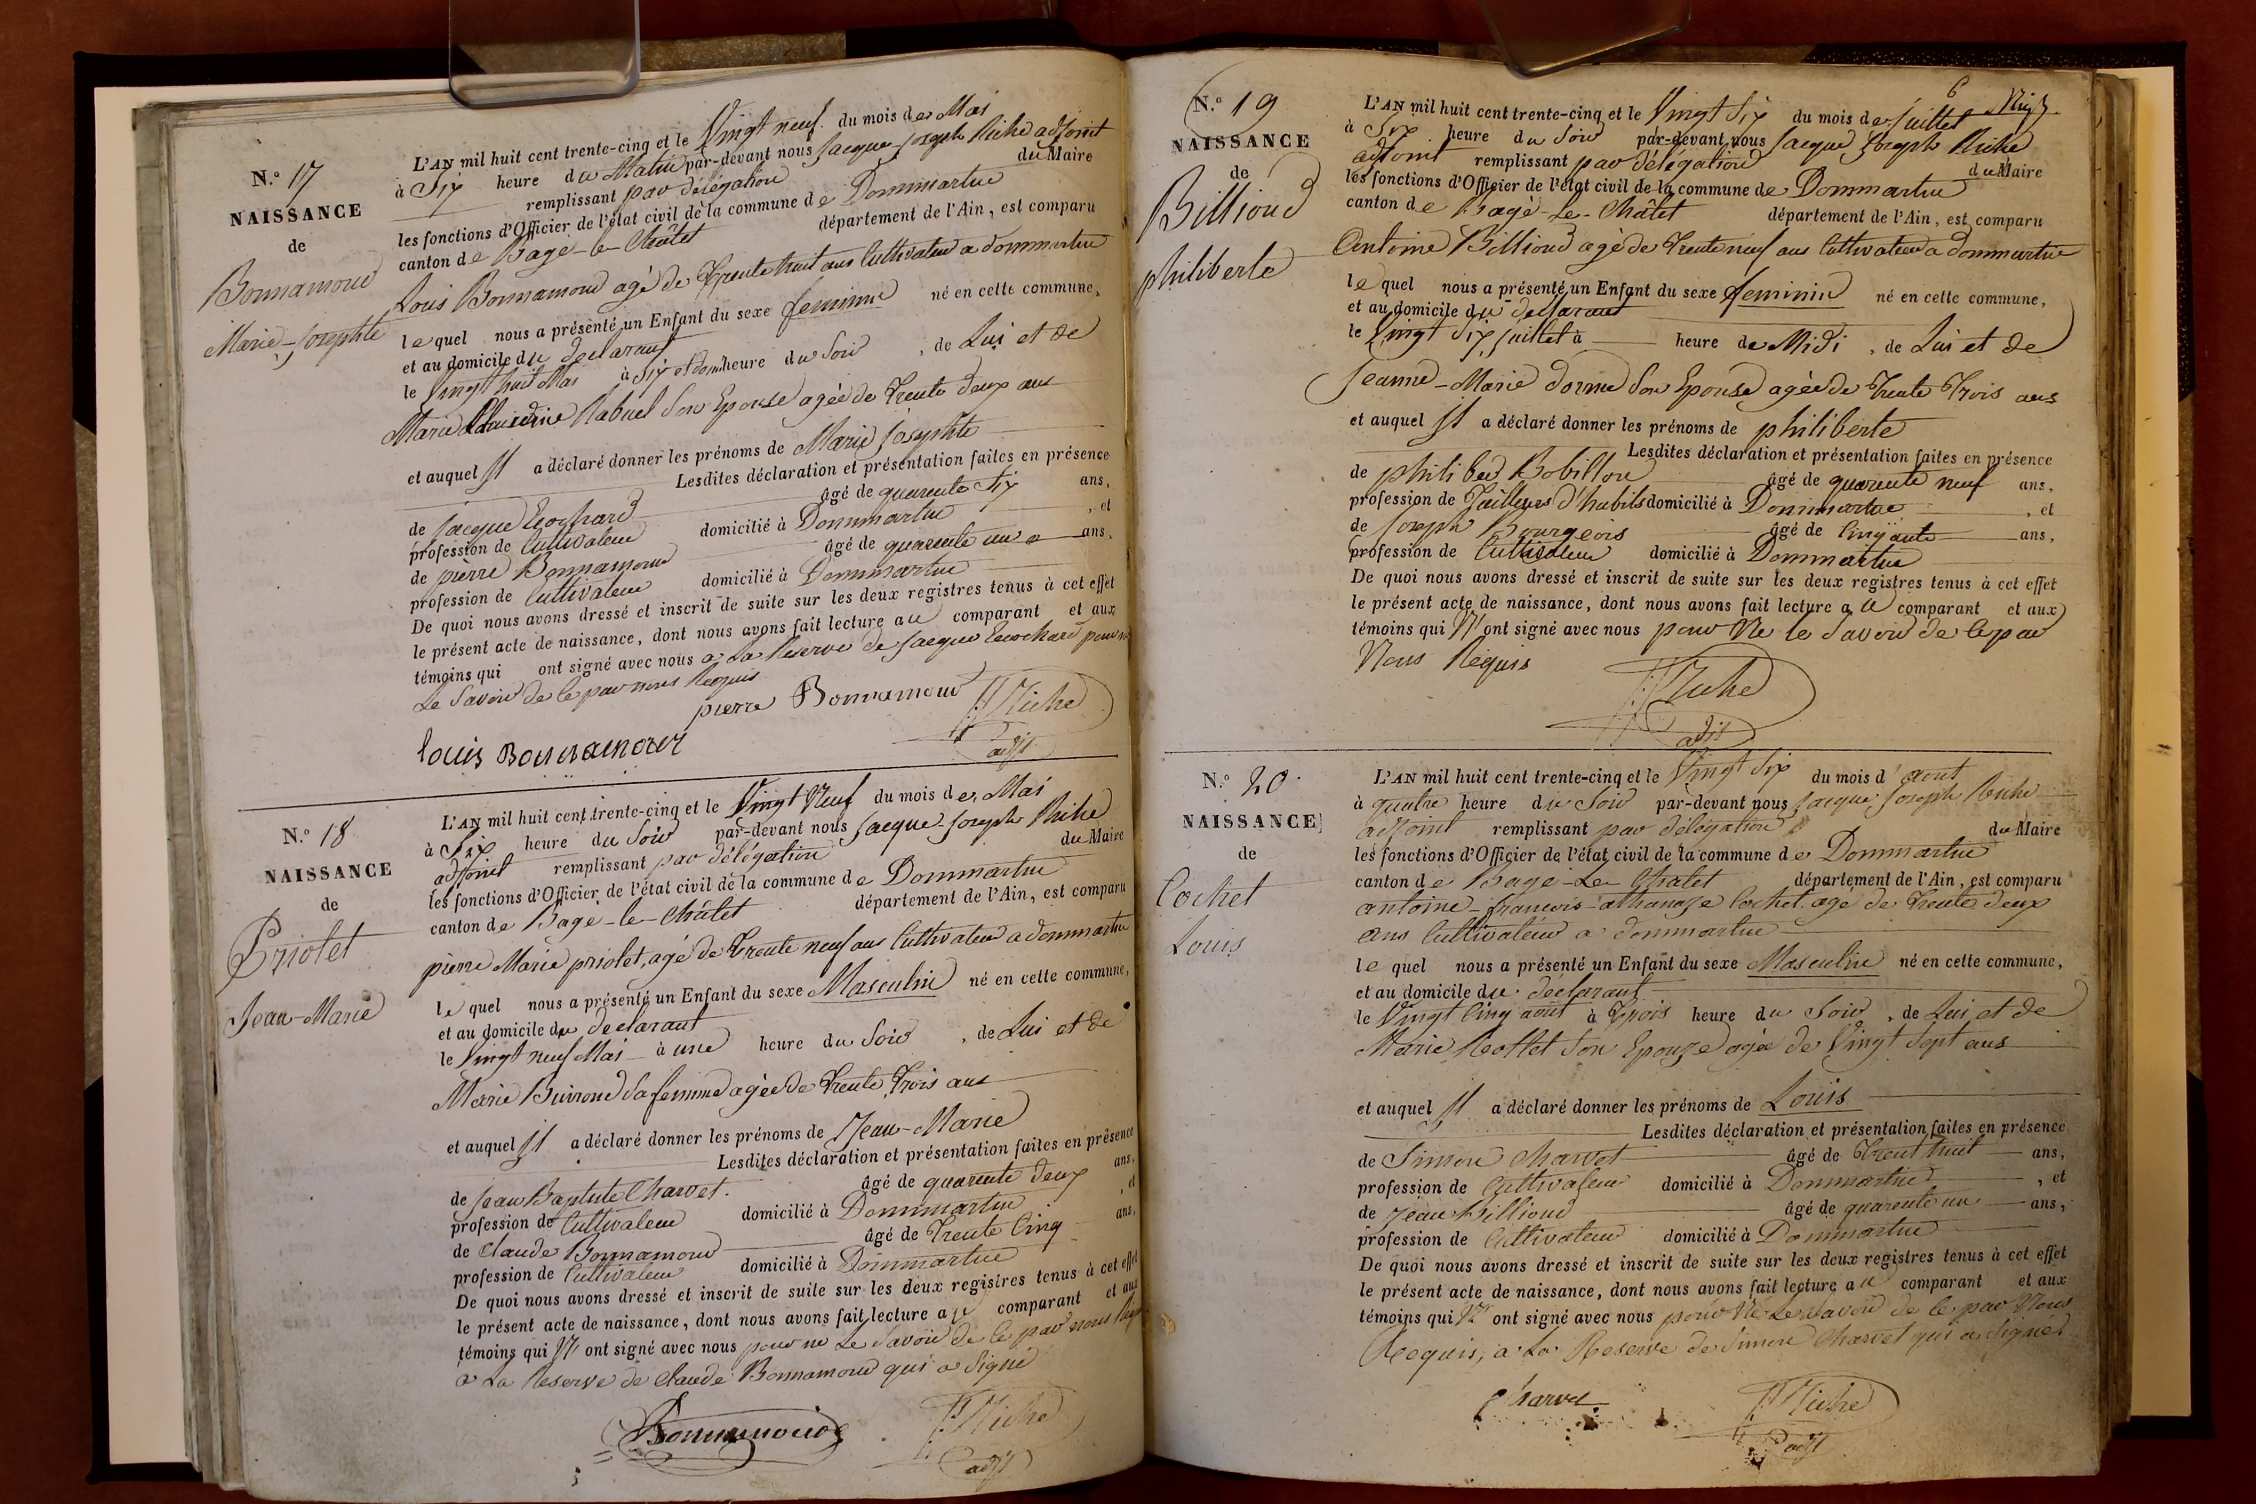 N.º 17
NAISSANCE
de
Bonnamour
Marie-Josephte
L'AN mil huit cent trente-cinq et le Vingt neuf du mois de Mai
à Six heure du Matin par-devant nous Jacque Joseph Riche adjoint
remplissant par délégation du Maire
les fonctions d'Officier de l'état civil de la commune de Dommartin
canton de Bagé-le-Châtel département de l'Ain, est comparu
Louis Bonnamour agé de Trente huit ans Cultivateur a dommartin
lequel nous a présenté un Enfant du sexe feminin né en cette commune,
et au domicile du declarant
le Vingt huit Mai à Six et demi heure du Soir, de Lui et de
Marie Claudine Rabuel Son Epouse agée de Trente deux ans
et auquel Il a déclaré donner les prénoms de Marie Josephte
Lesdites déclaration et présentation faites en présence
de Jacque Ecochard âgé de quarente Six ans,
profession de Cultivateur domicilié à Dommartin, et
de pierre Bonnamour âgé de quarente un ans,
profession de Cultivateur domicilié à Dommartin
De quoi nous avons dressé et inscrit de suite sur les deux registres tenus à cet effet
le présent acte de naissance, dont nous avons fait lecture au comparant et aux
témoins qui ont signé avec nous a La Reserve de Jacque Ecochard pour ne
Le Savoir de ce par nous Requis
pierre Bonnamour JJRiche
adjt
louis Bonnamour
N.º 18
NAISSANCE
de
Priolet
Jean-Marie
L'AN mil huit cent trente-cinq et le Vingt Neuf du mois de Mai
à Six heure du Soir par-devant nous Jacque-Joseph Riche
adjoint remplissant par délégation du Maire
les fonctions d'Officier de l'état civil de la commune de Dommartin
canton de Bagé-le-Châtel département de l'Ain, est comparu
pierre Marie priolet, agé de Trente neuf ans Cultivateur a dommartin
lequel nous a présenté un Enfant du sexe Masculin né en cette commune,
et au domicile du declarant
le Vingt neuf Mai à une heure du Soir, de Lui et de
Marie Buiron Sa femme agée de Trente Trois ans
et auquel Il a déclaré donner les prénoms de Jean-Marie
Lesdites déclaration et présentation faites en présence
de Jean Baptiste Charvet âgé de quarente deux ans,
profession de Cultivateur domicilié à Dommartin, et
de Claude Bonnamour âgé de Trente Cinq ans,
profession de Cultivateur domicilié à Dommartin
De quoi nous avons dressé et inscrit de suite sur les deux registres tenus à cet effet
le présent acte de naissance, dont nous avons fait lecture au comparant et aux
témoins qui N' ont signé avec nous pour ne Le Savoir de ce par nous Requis
a La Reserve de Claude Bonnamour qui a Signé
Bonnamour JJRiche
adjt
N.º 19
NAISSANCE
de
Billioud
philiberte
6
L'AN mil huit cent trente-cinq et le Vingt Six du mois de Juillet
à Six heure du Soir par-devant nous Jacque Joseph Riche
adjoint remplissant par délégation du Maire
les fonctions d'Officier de l'état civil de la commune de Dommartin
canton de Bagé-Le-Châtel département de l'Ain, est comparu
Antoine Billioud agé de Trente neuf ans Cultivateur a dommartin
lequel nous a présenté un Enfant du sexe feminin né en cette commune,
et au domicile du declarant
le Vingt Six Juillet à heure de Midi, de Lui et de
Jeanne-Marie dorme Son Epouse agée de Trente Trois ans
et auquel Il a déclaré donner les prénoms de philiberte
Lesdites déclaration et présentation faites en présence
de philibert Robillon âgé de quarente neuf ans,
profession de Tailleurs d'habits domicilié à Dommartin, et
de Joseph Bourgeois âgé de Cinquante ans,
profession de Cultivateur domicilié à Dommartin
De quoi nous avons dressé et inscrit de suite sur les deux registres tenus à cet effet
le présent acte de naissance, dont nous avons fait lecture au comparant et aux
témoins qui N' ont signé avec nous pour Ne le Savoir de ce par
Nous Requis
JJRiche
adjt
N.º 20
NAISSANCE
de
Cochet
Louis
L'AN mil huit cent trente-cinq et le Vingt Six du mois d'aout
à quatre heure du Soir par-devant nous Jacque Joseph Riche
adjoint remplissant par délégation du Maire
les fonctions d'Officier de l'état civil de la commune de Dommartin
canton de Bagé-Le-Châtel département de l'Ain, est comparu
antoine-francois-athanaze Cochet agé de Trente deux
ans Cultivateur a dommartin
lequel nous a présenté un Enfant du sexe Masculin né en cette commune,
et au domicile du declarant
le Vingt Cinq aout à Trois heure du Soir, de Lui et de
Marie Reollet Son Epouze agée de Vingt Sept ans
et auquel Il a déclaré donner les prénoms de Louis
Lesdites déclaration et présentation faites en présence
de Simon Charvet âgé de Trent huit ans,
profession de Cultivateur domicilié à Dommartin, et
de Jean Billioud âgé de quarente un ans,
profession de Cultivateur domicilié à Dommartin
De quoi nous avons dressé et inscrit de suite sur les deux registres tenus à cet effet
le présent acte de naissance, dont nous avons fait lecture au comparant et aux
témoins qui N' ont signé avec nous pour Ne Le Savoir de ce par Nous
Requis, a La Reserve de Simon Charvet qui a Signé
Charvet JJRiche
adjt